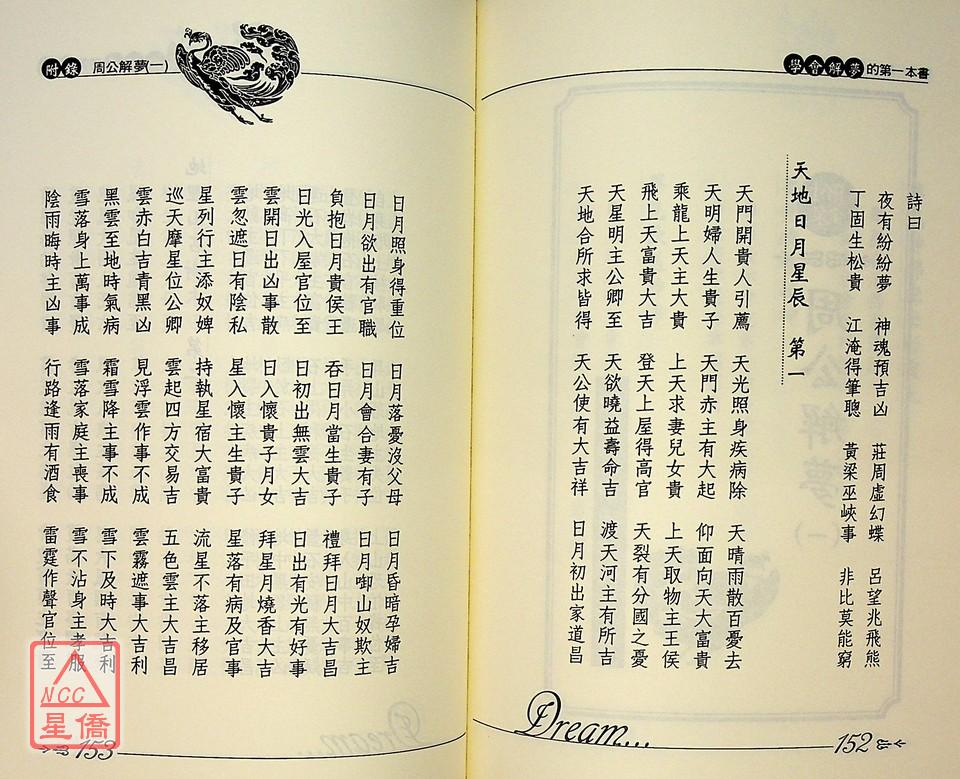 學會解夢的第一本書
詩曰
夜有紛紛夢 神魂預吉凶 莊周虛幻蝶 呂望兆飛熊
丁固生松貴 江淹得筆聰 黃梁巫峽事 非比莫能窮
天地日月星辰 第一
天門開貴人引薦 天光照身疾病除 天晴雨散百憂去
天明婦人生貴子 天門赤主有大起 仰面向天大富貴
乘龍上天主大貴 上天求妻兒女貴 上天取物主王侯
飛上天富貴大吉 登天上屋得高官 天裂有分國之憂
天星明主公卿至 天欲曉益壽命吉 渡天河主有所吉
天地合所求皆得 天公使有大吉祥 日月初出家道昌
Dream...
152
附錄 周公解夢(一)
日月照身得重位 日月落憂沒父母 日月昏暗孕婦吉
日月欲出有官職 日月會合妻有子 日月啣山奴欺主
負抱日月貴侯王 吞日月當生貴子 禮拜日月大吉昌
日光入屋官位至 日初出無雲大吉 日出有光有好事
雲開日出凶事散 日入懷貴子月女 拜星月燒香大吉
雲忽遮日有陰私 星入懷主生貴子 星落有病及官事
星列行主添奴婢 持執星宿大富貴 流星不落主移居
巡天摩星位公卿 雲起四方交易吉 五色雲主大吉昌
雲赤白吉青黑凶 見浮雲作事不成 雲霧遮事大吉利
黑雲至地時氣病 霜雪降主事不成 雪下及時大吉利
雪落身上萬事成 雪落家庭主喪事 雪不沾身主孝服
陰雨晦時主凶事 行路逢雨有酒食 雷霆作聲官位至
NCC
星僑
153